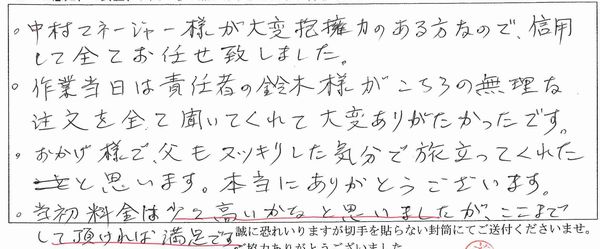 。中村マネージャー様が大変抱擁力のある方なので、信用
して全てお任せ致しました。
。作業当日は責任者の鈴木様がこちらの無理な
注文を全て聞いてくれて大変ありがたかったです。
・おかげ様で、父もスッキリした気分で旅立ってくれた
と思います。本当にありがとうございます。
。当初料金は少々高いかなと思いましたが、ここまで
して頂ければ満足です。誠に恐れいりますが切手を貼らない封筒にてご送付くださいませ。
ご協力ありがとうございました